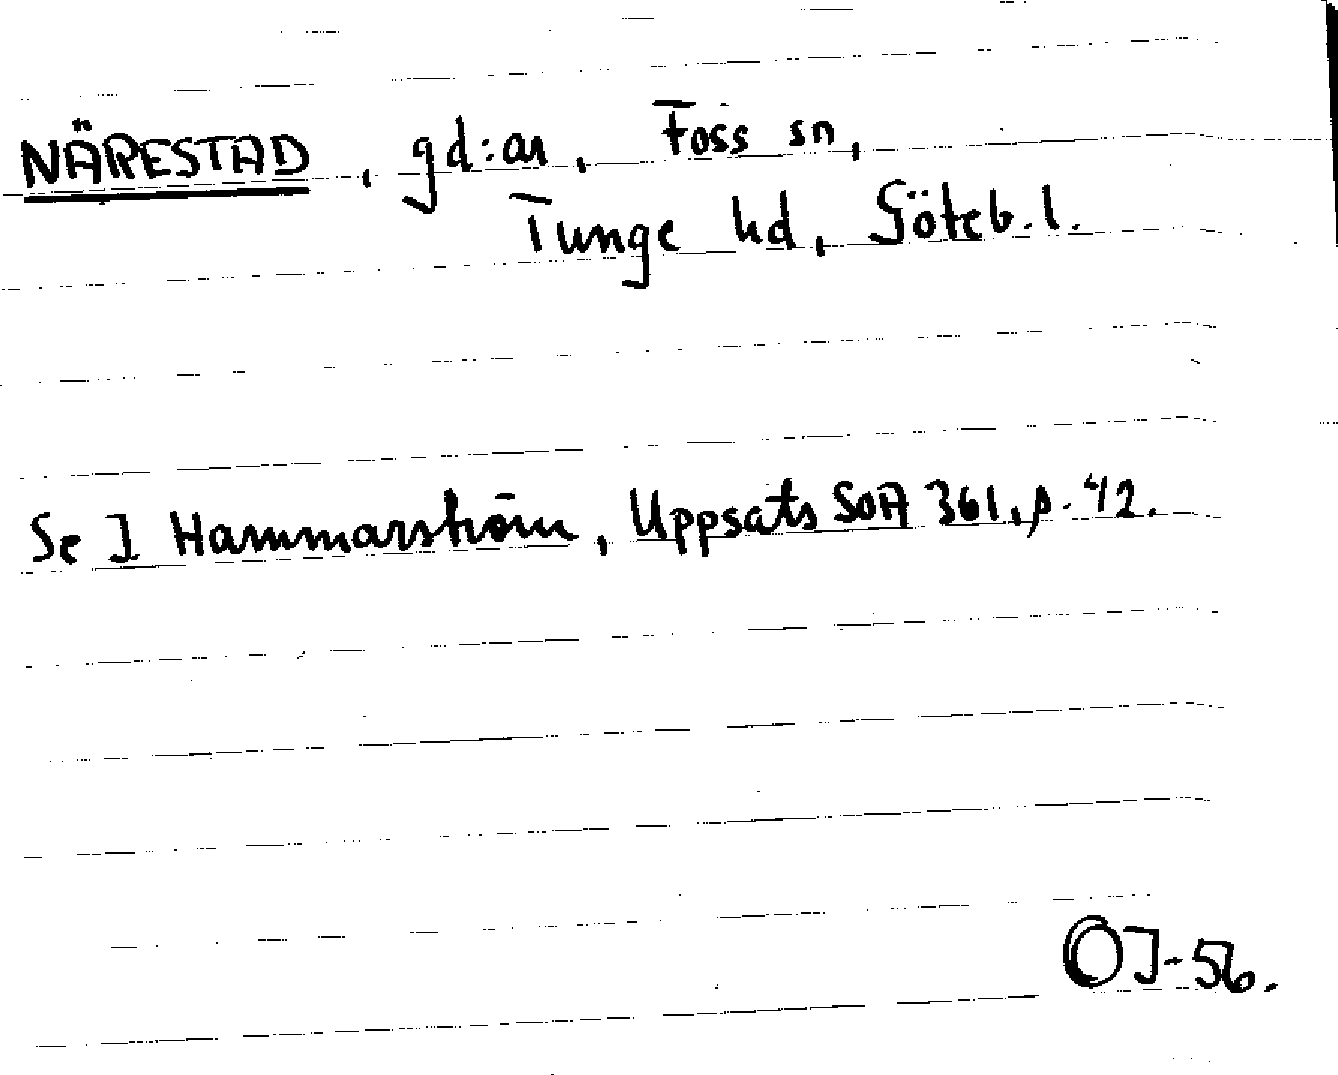 NÄRESTAD, gd:ar, Foss sn,
Tunge hd, Göteb. l.
Se I Hammarström, Uppsats SOA 361, p. 42.
OJ-56.